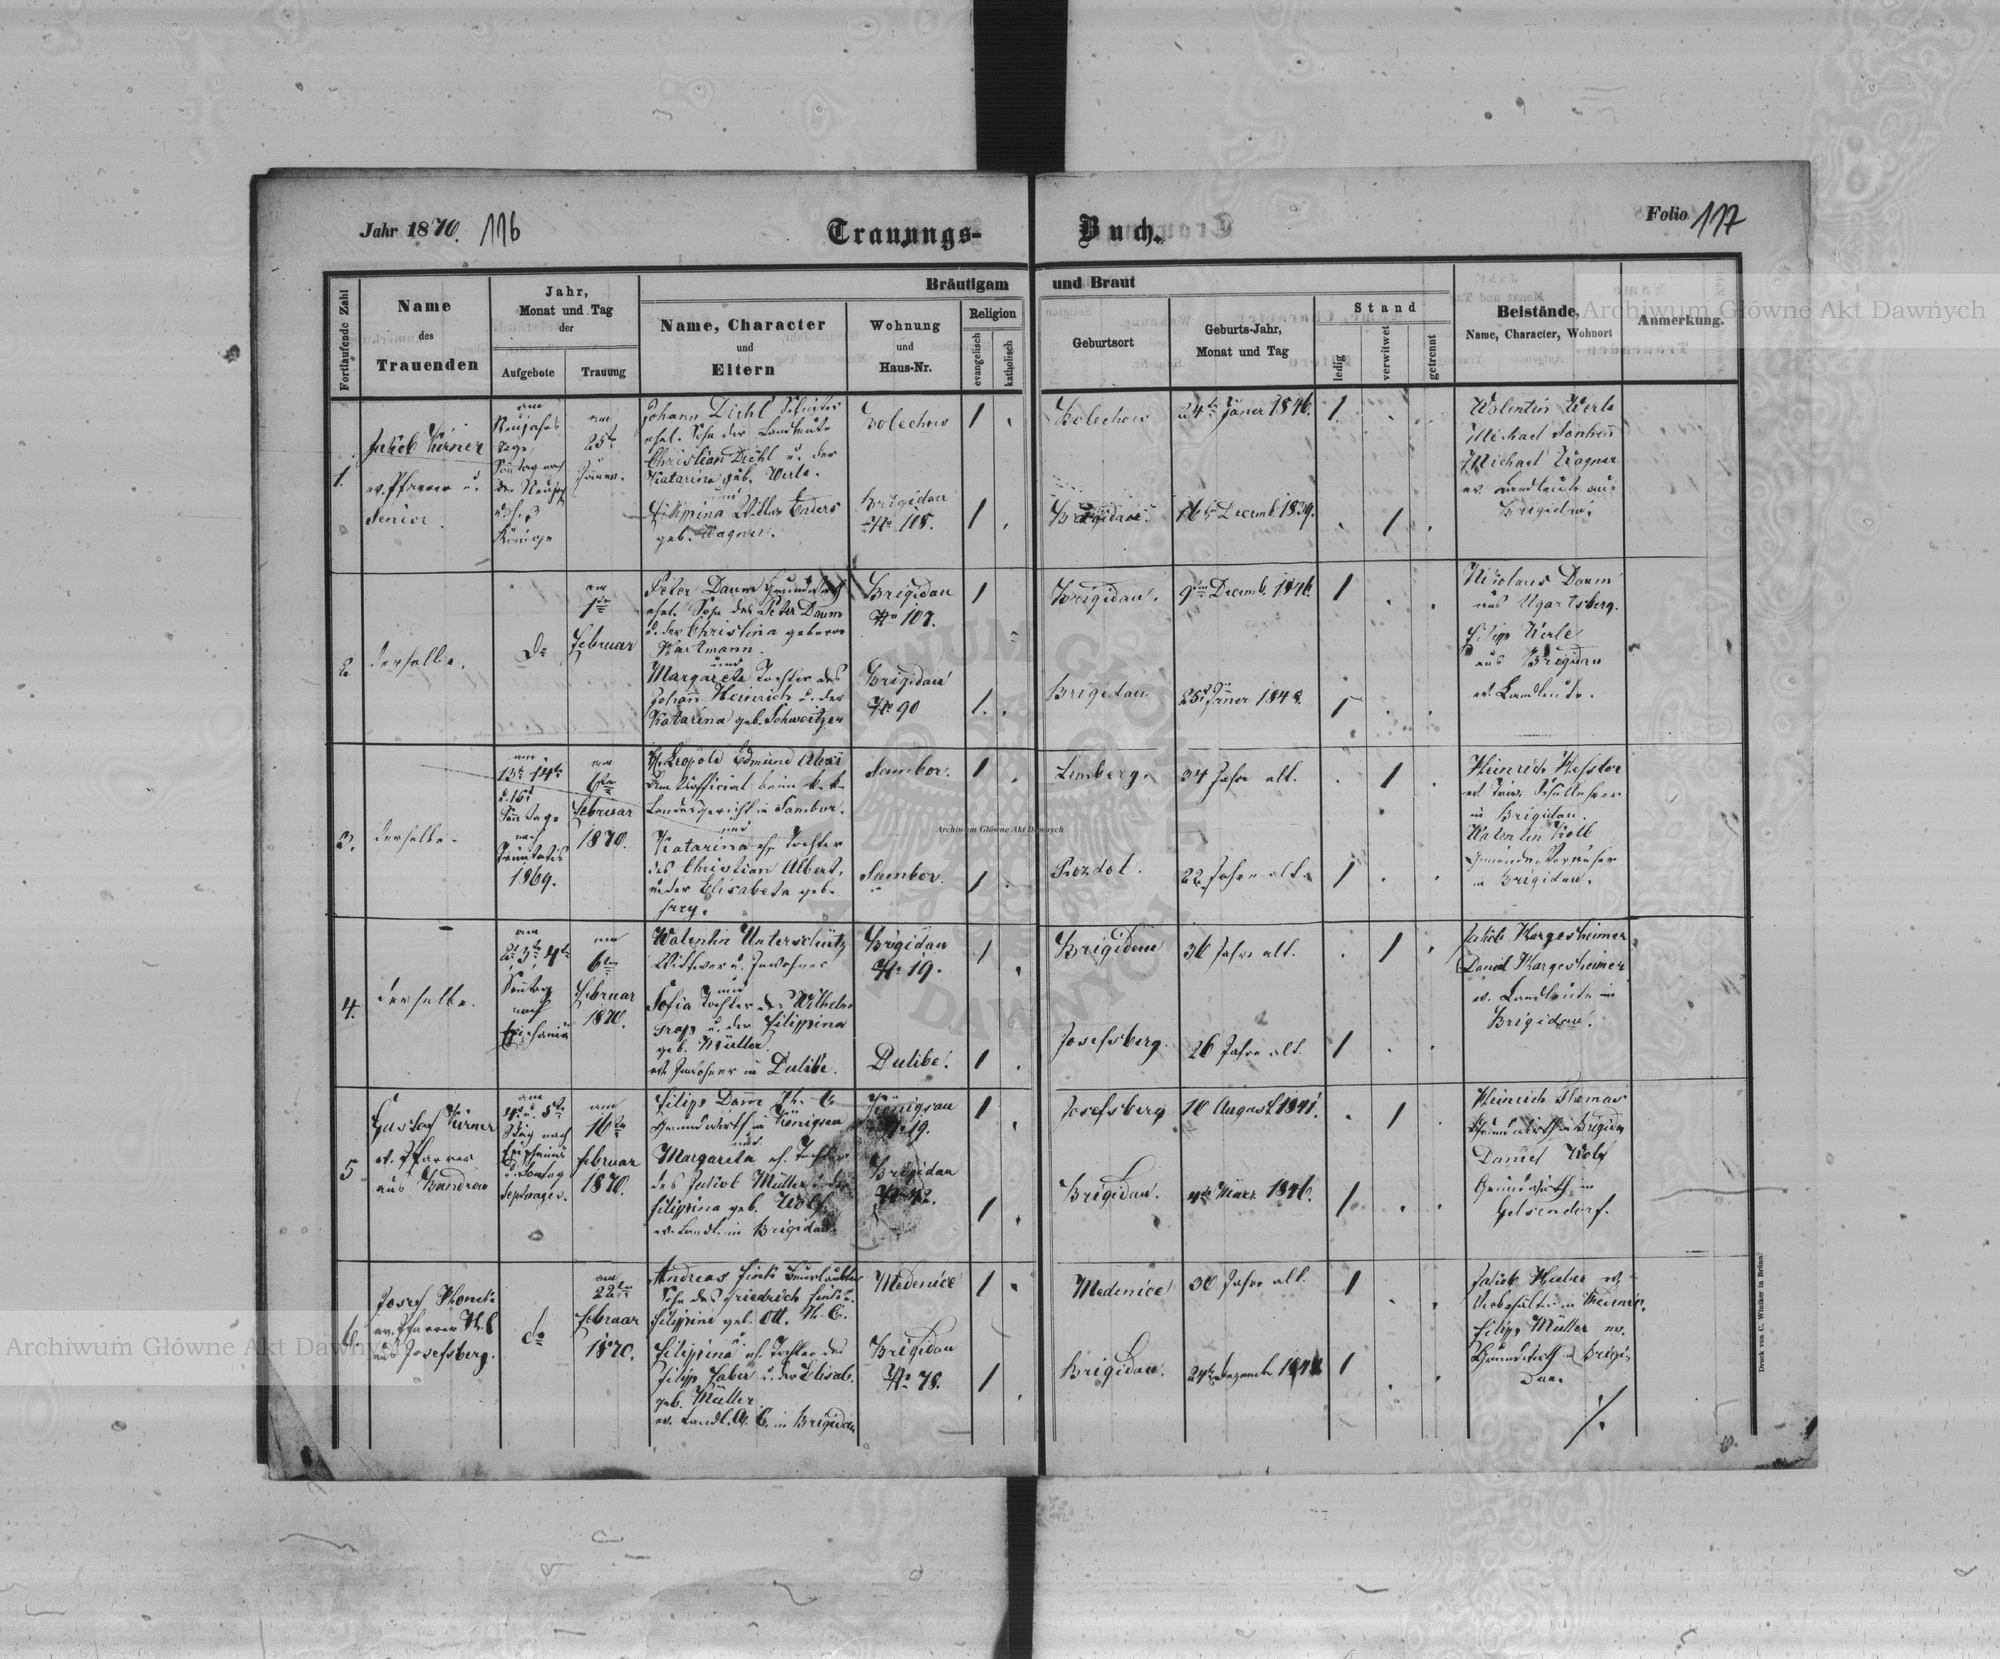 Jahr 1870. 116
Trauungs-
Buch.
Folio 117
Fortlaufende Zahl
Name
des
Trauenden
Jahr,
Monat und Tag
der
Aufgebote
Trauung
Bräutigam
und Braut
Name, Character
und
Eltern
Wohnung
und
Haus-Nr.
Religion
evangelisch
katholisch
Geburtsort
Geburts-Jahr,
Monat und Tag
Stand
ledig
verwitwet
getrennt
Beistände,
Name, Character, Wohnort
Anmerkung.
Archiwum Główne Akt Dawnych
1.
Jakob Kirner
ev. Pfarrer u.
Senior.
am
Neujahrs
tage,
Sonntag nach
dem Neujahr
Könige
am
25t
Jänner.
Johann Diehl
ehel. Sohn der Landleute
Christian Diehl u. der
Katarina geb. Werle.
und
Filippina Wittwe Enders
geb. Wagner.
Bolechow
Brigidau
No 118.
1
1
Bolechow
Brigidau.
24t Jäner 1846.
16t Decemb 1839.
1.
1
Valentin Werle
Michael
Michael Wagner
ev. Landleute aus
Brigidau.
2
derselbe.
do
am
1ten
Februar
Peter Daum
ehel. Sohn des Peter Daum
u. der Christina geborne
Hartmann.
und
Margareta Tochter des
Johann Heinrich u. der
Katarina geb. Schweitzer
Brigidau
No 107.
Brigidau
No 90
1
1.
Brigidau.
Brigidau
9ten Decemb. 1846.
25t Jäner 184
1
1
Nikolaus Daum
aus Ugartsberg.
Filipp Werle
aus Brigidau
ev. Landleute.
3.
derselbe.
am
13t 14t
u. 15t
Sonntage
nach
Trinitatis
1869.
am
6ten
Februar
1870.
Leopold Edmund
beim k. k.
Landesgericht in Sambor.
und
Katarina eh. Tochter
des Christian Albert,
u. der Elisabeta geb.
Frey.
Sambor.
Sambor.
1
1
Lemberg.
Rozdol.
34 Jahre alt.
22 Jahre alt.
1
1
Heinrich
ev. Schullehrer
in Brigidau.
Valentin Kolb
Gemeinde Vorsteher
in Brigidau.
4.
derselbe.
am
2t 3t 4t
Sonntag
nach
Epiphania
am
6ten
Februar
1870.
Valentin Unterschütz
Wittwer u. Inwohner
und
Sofia Tochter des Wilhelm
u. der Filippina
geb. Müller.
ev. Inwohner in Dulibe.
Brigidau
No 19.
Dulibe.
1
1
Brigidau
Josefsberg.
36 Jahre alt.
26 Jahre alt.
1
1
Jakob Hargesheimer
Daniel Hargesheimer
ev. Landleute in
Brigidau.
5
Gustav Kirner
ev. Pfarrer
aus
am
4t u. 5t
Sttag nach
Epiphania
u. Sontag
Septuages.
am
16ten
Februar
1870.
Filipp Damm
Grundwirth in Königsau
und
Margareta eh. Tochter
des Jakob Müller u. der
Filippina geb. Wolf
ev. Landl. in Brigidau.
Königsau
No 19.
Brigidau
No 42.
1
1
Josefsberg
Brigidau.
10 August 1841.
4t März 1846.
1
1
Heinrich Thomas
Grundwirth in Brigidau
Daniel Wolf
Grundwirth in
Gelsendorf.
6.
Josef
ev. Pfarrer H. C
aus Josefsberg.
do
am
22ten
Februar
1870.
Andreas Fink Beurlaubter
Sohn des Friedrich Fink u.
Filippine geb. Ott. H. C.
u.
Filippina eh. Tochter des
Filipp Faber u. der Elisab.
geb. Müller
ev. Landl. A. C. in Brigidau
Medenice
Brigidau
No 78.
1
1
Medenice
Brigidau.
30 Jahre alt.
24t Dezember
1
1
Jakob Huber ev.
in Medenice.
Filipp Müller ev.
Grundwirth in Brigi-
dau.
Druck von C. Winiker in Brünn.
Archiwum Główne Akt Dawnych
Archiwum Główne Akt Dawnych